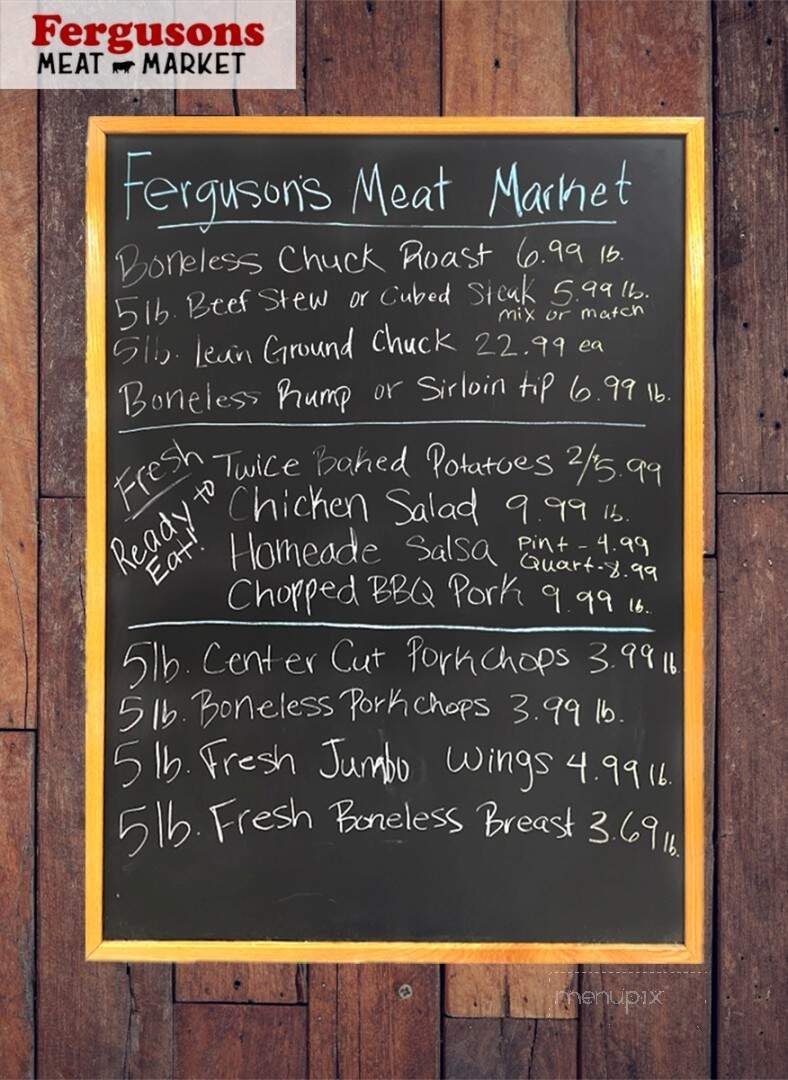 Fergusons
MEAT MARKET
Ferguson's Meat Market
Boneless Chuck Roast 6.99 lb.
5lb. Beef Stew or Cubed Steak 5.99 lb.
mix or match
5lb. Lean Ground Chuck 22.99 ea
Boneless Rump or Sirloin tip 6.99 lb.
Fresh
Ready to
Eat!
Twice Baked Potatoes 2/$5.99
Chicken Salad 9.99 lb.
Homeade Salsa Pint - 4.99
Quart - 8.99
Chopped BBQ Pork 9.99 lb.
5lb. Center Cut Porkchops 3.99 lb
5lb. Boneless Porkchops 3.99 lb.
5lb. Fresh Jumbo Wings 4.99 lb.
5lb. Fresh Boneless Breast 3.69 lb.
menupix